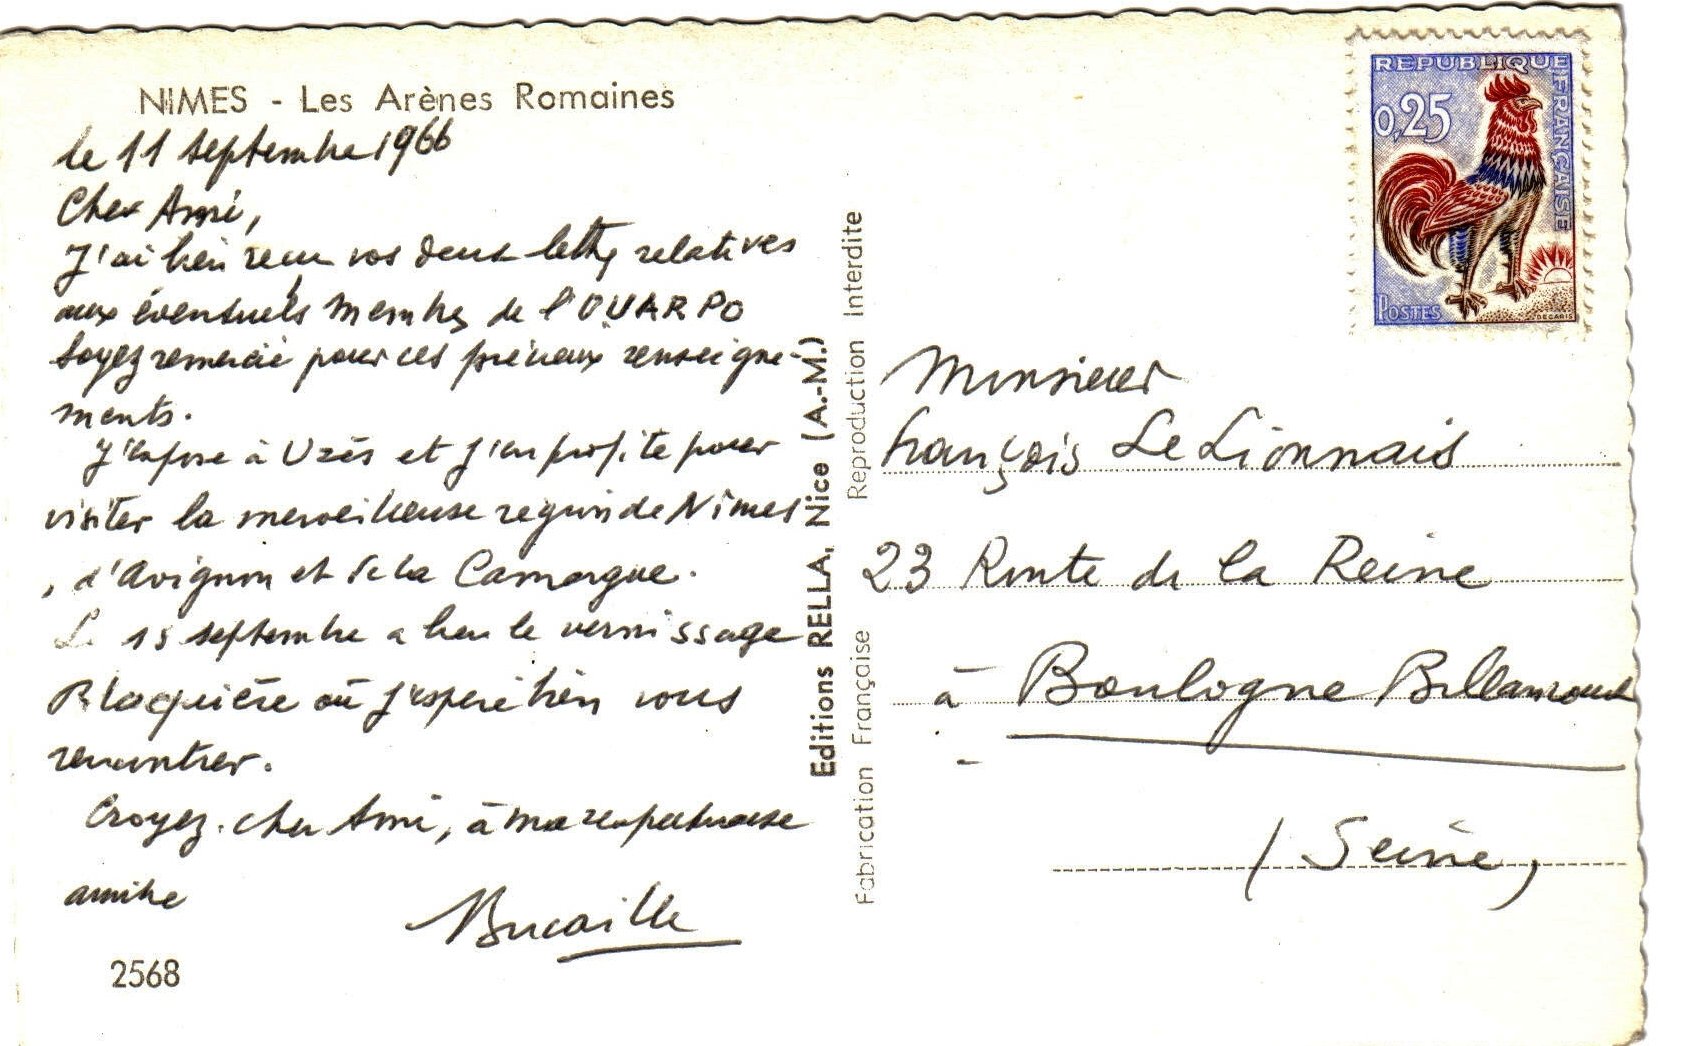 NIMES - Les Arènes Romaines
le 11 septembre 1966
Cher Ami,
J'ai bien reçu vos deux lettres relatives
aux éventuels membres de l'OUARPO
Soyez remercié pour ces précieux renseigne-
ments.
J'expose à Uzès et j'en profite pour
visiter la merveilleuse region de Nimes
, d'Avignon et de la Camargue.
Le 15 septembre a lieu le vernissage
Blaquière où j'espère bien vous
rencontrer.
Croyez, cher Ami, à ma respectueuse
amitié
Bucaille
2568
Editions RELLA, Nice (A.-M.)
Fabrication Française Reproduction Interdite
REPUBLIQUE FRANÇAISE
0,25
POSTES
DECARIS
Monsieur
François Le Lionnais
23 Route de la Reine
à Boulogne Billancourt
(Seine)